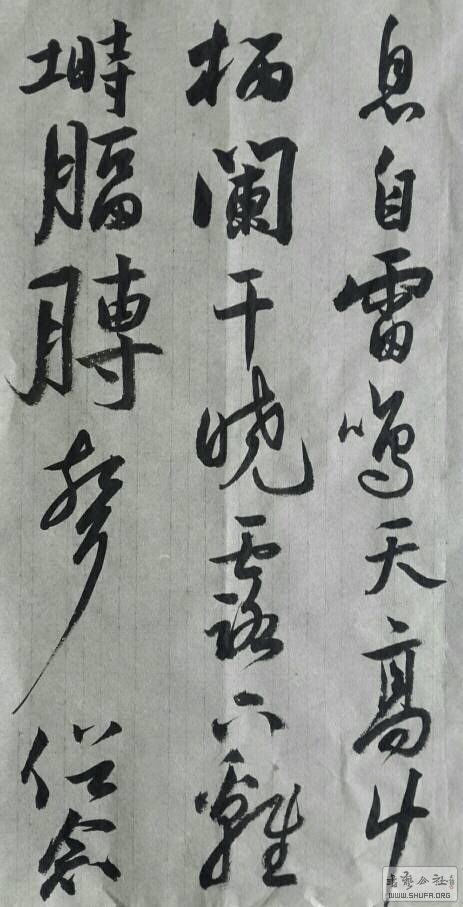 息自雷鳴天高斗
柄闌干曉露下雞
塒腷膊聲俗念
書藝公社
WWW.SHUFA.ORG